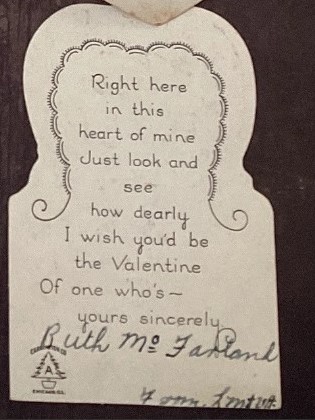 Right here
in this
heart of mine
Just look and
see
how dearly
I wish you'd be
the Valentine
Of one who's~
yours sincerely
Ruth Mc Farland
A
CHICAGO, ILL.